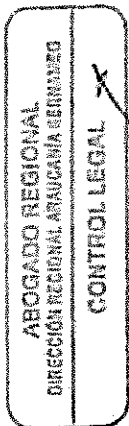 ABOGADO REGIONAL
DIRECCIÓN REGIONAL ARAUCANÍA
CONTROL LEGAL